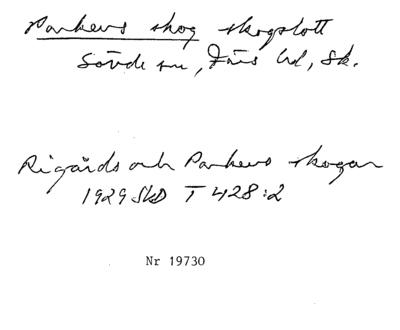 Parkers skog skogslott
Sövde sn, Färs hd, Sk.
Rigårds och Parkers skogar
1929 SkD T 428:2
Nr 19730